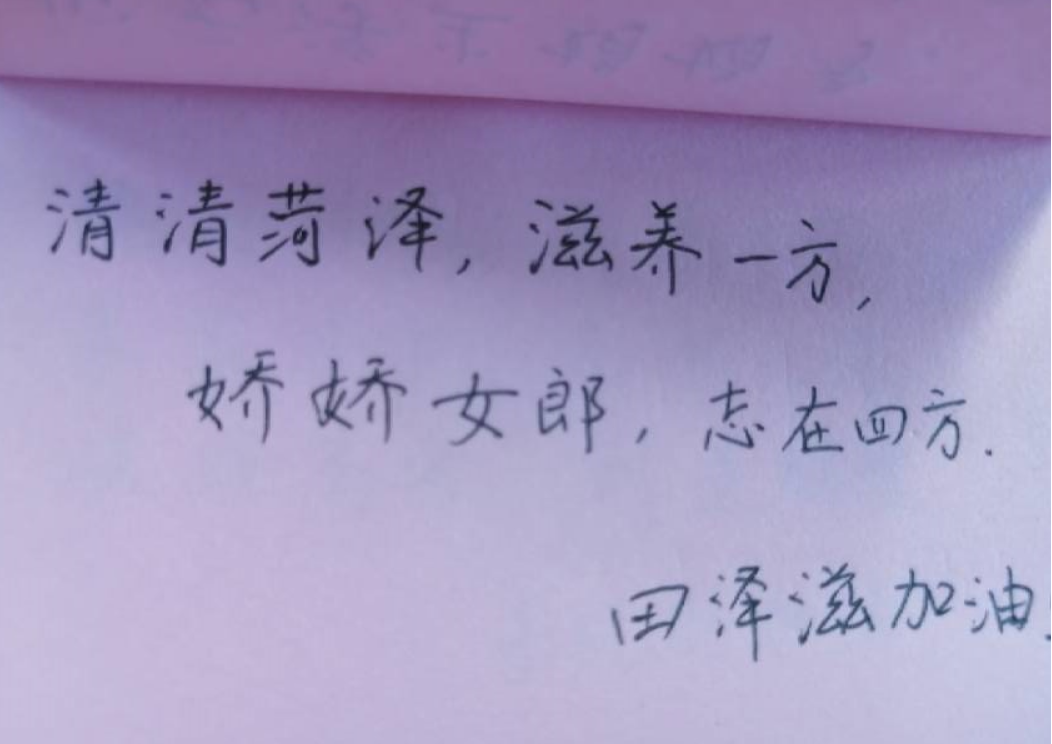 清清菏泽，滋养一方，
娇娇女郎，志在四方.
田泽滋加油!